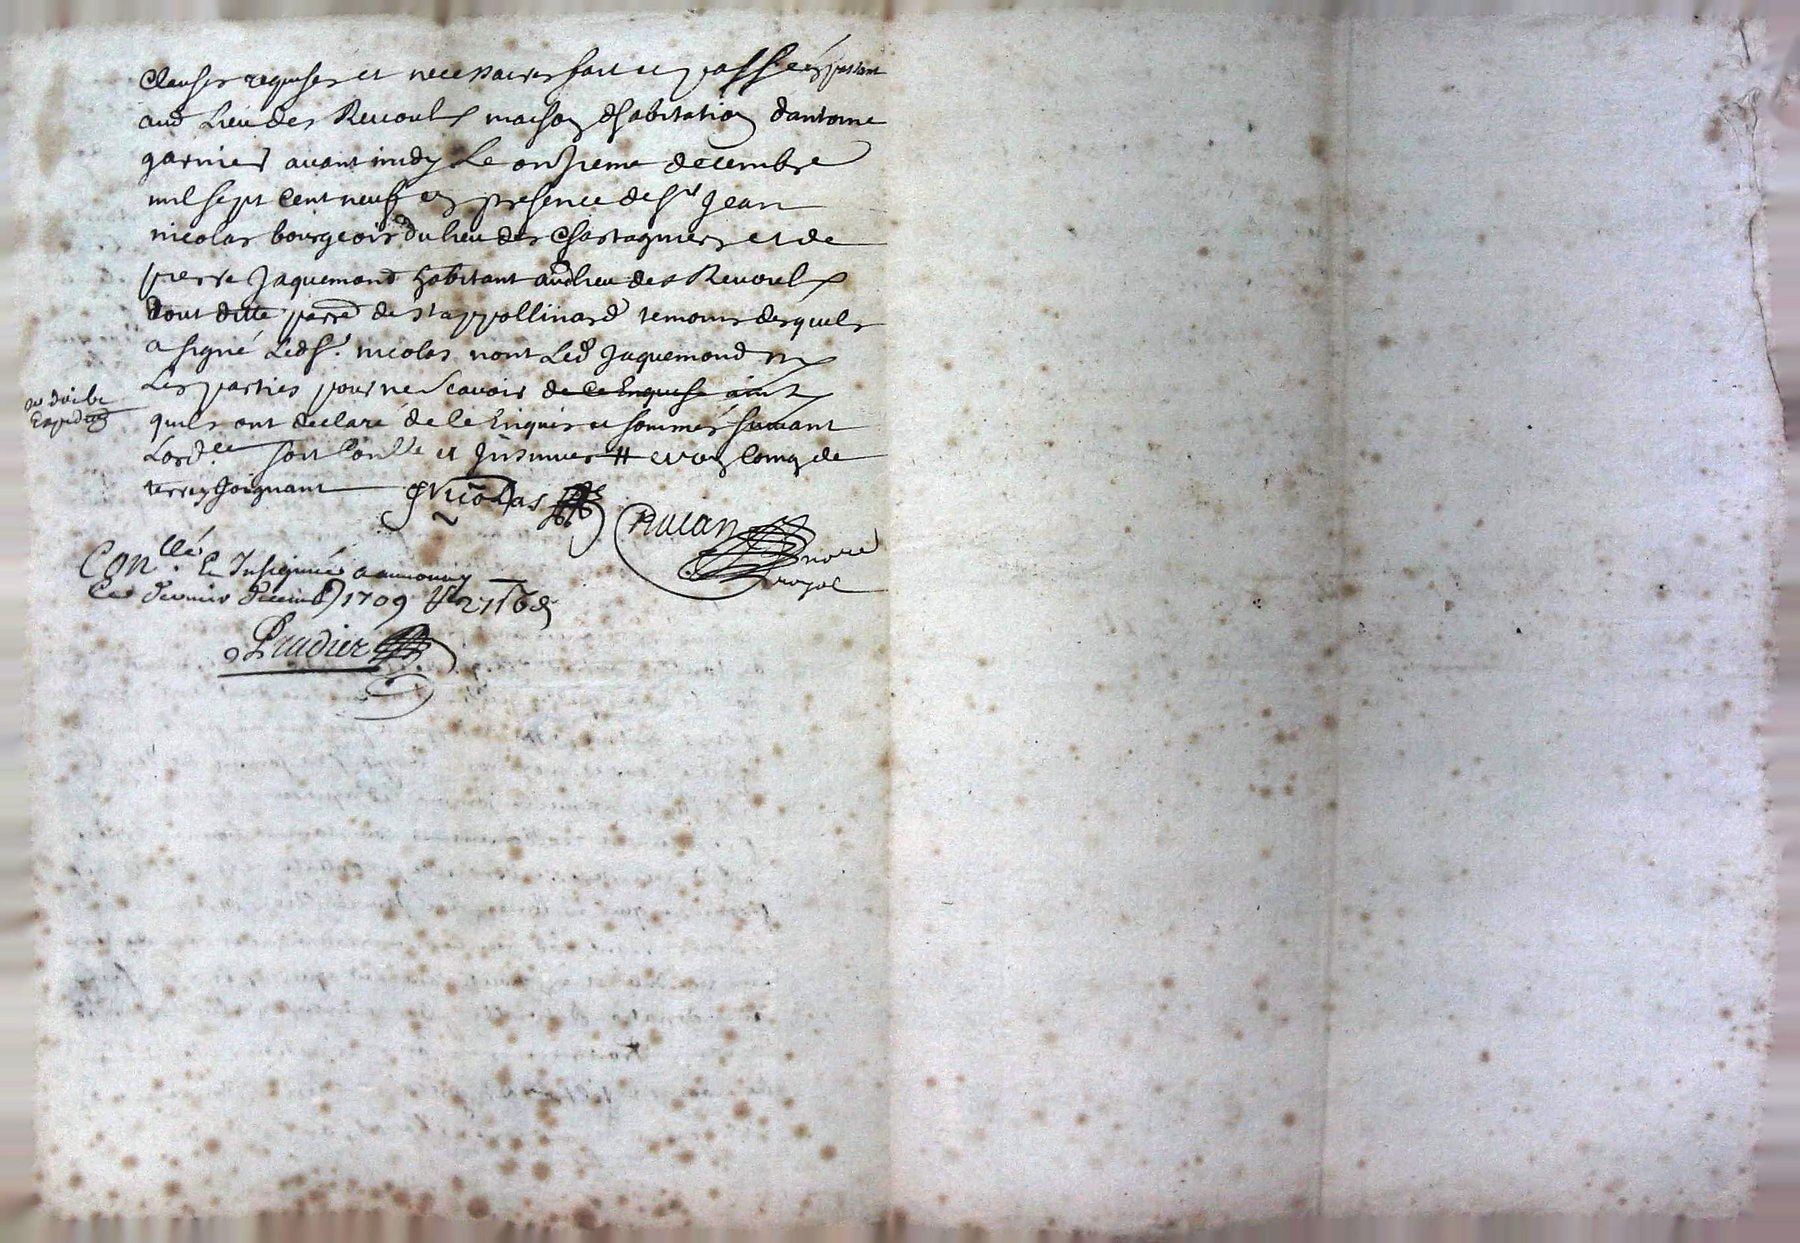 clauses requises et necessaires fait et passé
aud Lieu des Revouls maison dhabitation dantoine
garnier avant midy Le onzieme decembre
mil sept cent neuf en presence de Sr Jean
nicolas bourgeois du lieu des Chastagniers et de
pierre Jaquemond habitant aud lieu des Revouls
tout ditte parre de st appollinard temoins desquels
a signé Ledsr. nicolas nont Led Jaquemond ny
Les parties pour ne scavoir de ce Enquise aint
quils ont declaré de ce Enquis et sommés suivant
Lordce soit Contlle et Insinues # et
terres Joignant
Expedié
Nicolas
Ruccan
nore
royal
Conllé. Et Insignué a annonay
Le dernier decemb 1709
Prudier